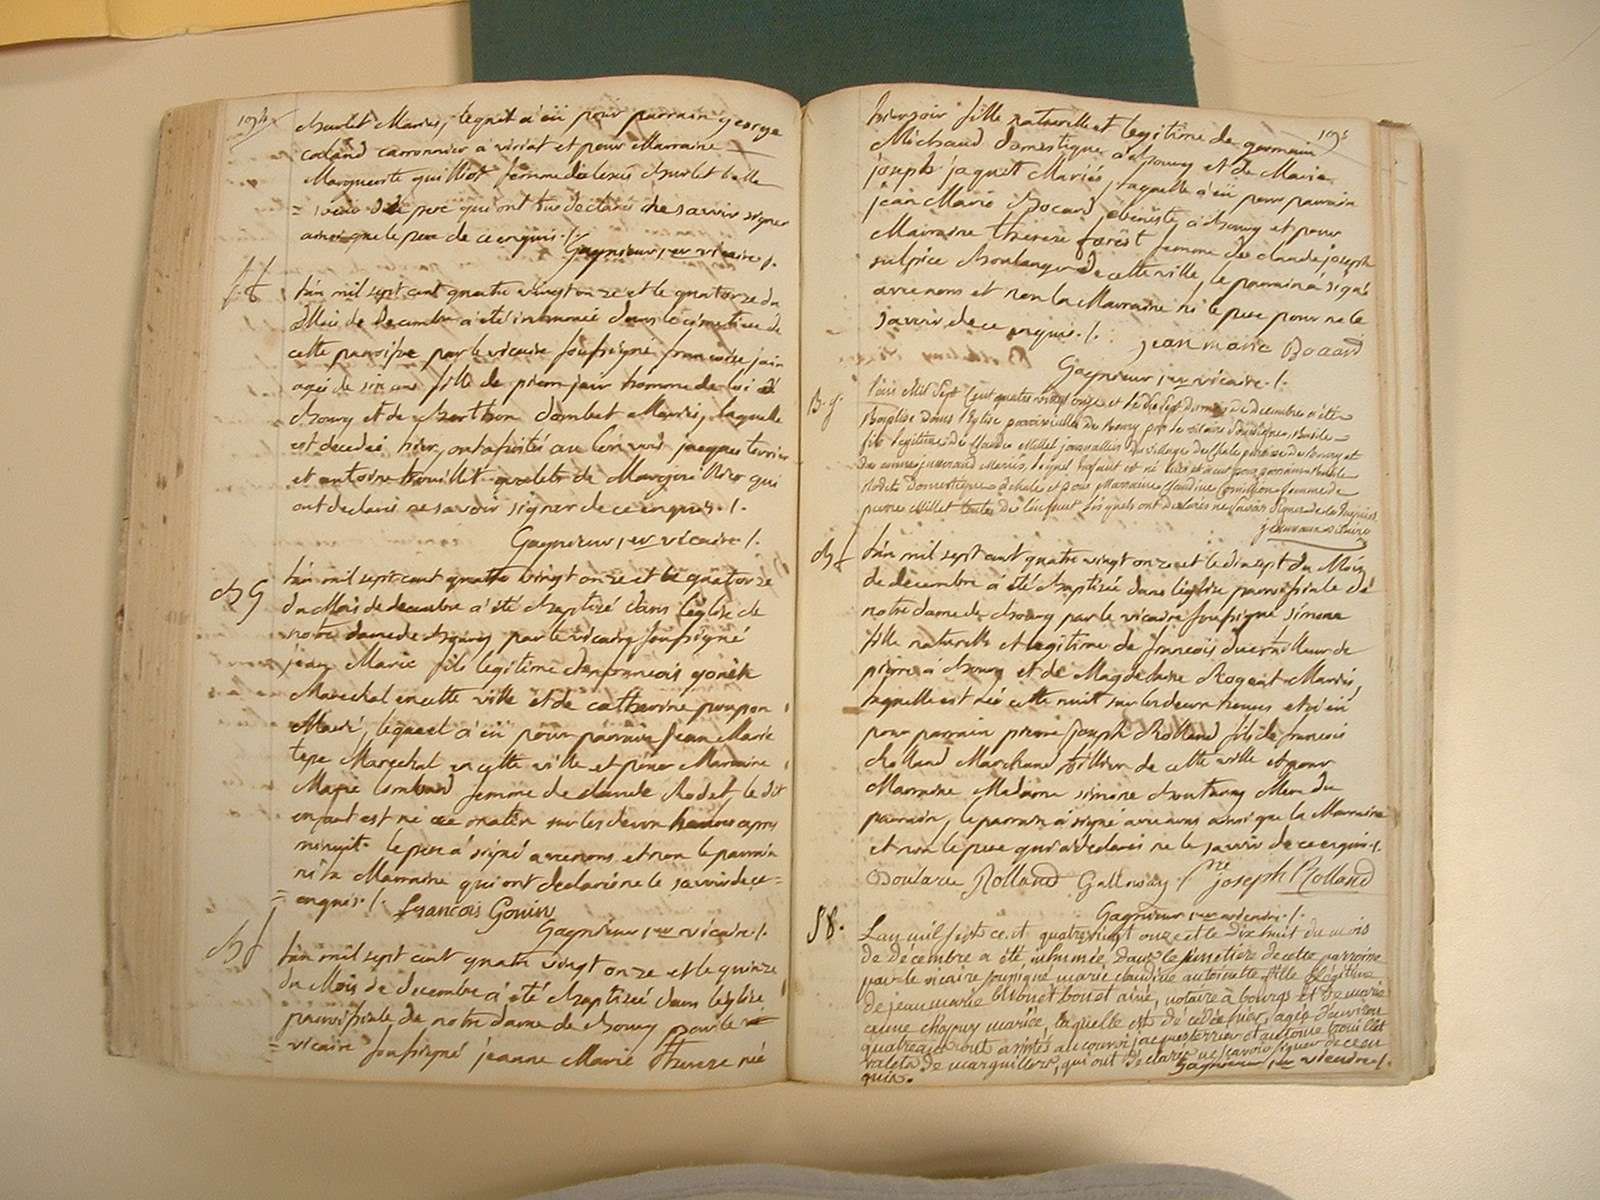 1094
Burlet Mariés, lequel a eü pour parrain george
caland caronnier a viriat et pour Marraine
Marguerite guilliot femme d'alexis Burlet belle
= soeur du pere qui ont tous declaré ne savoir signer
ainsi que le pere de ce enquis ./.
Gagnieur 1er vicaire ./.
S f
L'an mil sept cent quatre vingt onze et le quatorze du
Mois de Decembre a été inhumée dans le cimetiere de
cette paroisse par le vicaire soussigné françoise jair
agée de six ans fille de pierre jair homme de loi à
Bourg et de Berthon dombet Mariés, laquelle
est decedée hier, ont assistés au Convoi jacques terrier
et antoine trouillet valets de Marguillier qui
ont declaré ne savoir signer de ce enquis ./.
Gagnieur 1er vicaire ./.
B G
L'an mil sept cent quatre vingt onze et le quatorze
du Mois de decembre a été Baptizé dans l'église de
notre dame de Bourg par le vicaire soussigné
jean Marie fils legitime de françois gonin
Marechal en cette ville et de catherine poupon
Mariés, lequel a eü pour parrain jean Marie
tepe Marechal en cette ville et pour Marraine
Marie lombard femme de claude Rodet, le dit
enfant est né ce matin sur les deux heures apres
minuit le pere a signé avec nous et non le parrain
ni la Marraine qui ont declaré ne le savoir de ce
= enquis ./. françois Gonin
Gagnieur 1er vicaire ./.
B f
L'an mil sept cent quatre vingt onze et le quinze
du Mois de decembre a été Baptizée dans l'église
paroissiale de notre dame de Bourg par le
= vicaire soussigné jeanne Marie therese née
1095
hier soir fille naturelle et legitime de germain
Michaud domestique a Bourg et de Marie
joseph jaquet Mariés, laquelle a eü pour parrain
jean Marie Bocard ebeniste a Bourg et pour
Marraine therese forest femme de claude joseph
sulpice Boulanger de cette ville, le parrain a signé
avec nous et non la Marraine ni le pere pour ne le
savoir de ce enquis ./.
jean marie Bocard
Gagnieur 1er vicaire ./.
B. g.
L'an Mil Sept Cent quatre vingt onze et le dix sept du mois de decembre a été
Baptisé Dans l'Eglise paroissialle de Bourg par le vicaire soussigné, Basile
fils légitime de Claude Millet journallier au village de Chale paroisse de Bourg et
de mariés, lequel enfant est né hier et a eut pour parrain Basile
Rodet Domestique a Chale et pour Marraine Claudine femme de
pierre Millet de l'enfant lesquels ont déclarés ne savoir signer de ce enquis
B f
L'an mil sept cent quatre vingt onze et le dix sept du Mois
de decembre a été Baptizée dans l'église paroissiale de
notre dame de Bourg par le vicaire soussigné simone
fille naturelle et legitime de françois tailleur de
pierre a Bourg et de Magdelaine Rogeat Mariés,
laquelle est née cette nuit sur les deux heures et a eü
pour parrain pierre joseph Rolland fils de françois
Rolland Marchand de cette ville et pour
Marraine Madame simone Mere du
parrain, le parrain a signé avec nous ainsi que la Marraine
et non le pere qui a declaré ne le savoir de ce enquis ./.
Rolland pre joseph Rolland
Gagnieur 1er vicaire ./.
S 8.
L'an mil sept cent quatre vingt onze et le dix huit du mois
de décembre a été inhumée dans le cimetière de cette parroisse
par le vicaire soussigné marie claudine antoinette fille légitime
de jean marie bouet ainé, notaire à bourg et de marie
anne chapuy mariés, laquelle est décédée hier, agée d'environ
quatre ans ont assistés au convoi jacques terrier et antoine trouillet
valets de marguillier, qui ont déclaré ne savoir signer de ce en
quis. Gagnieur 1er vicaire ./.